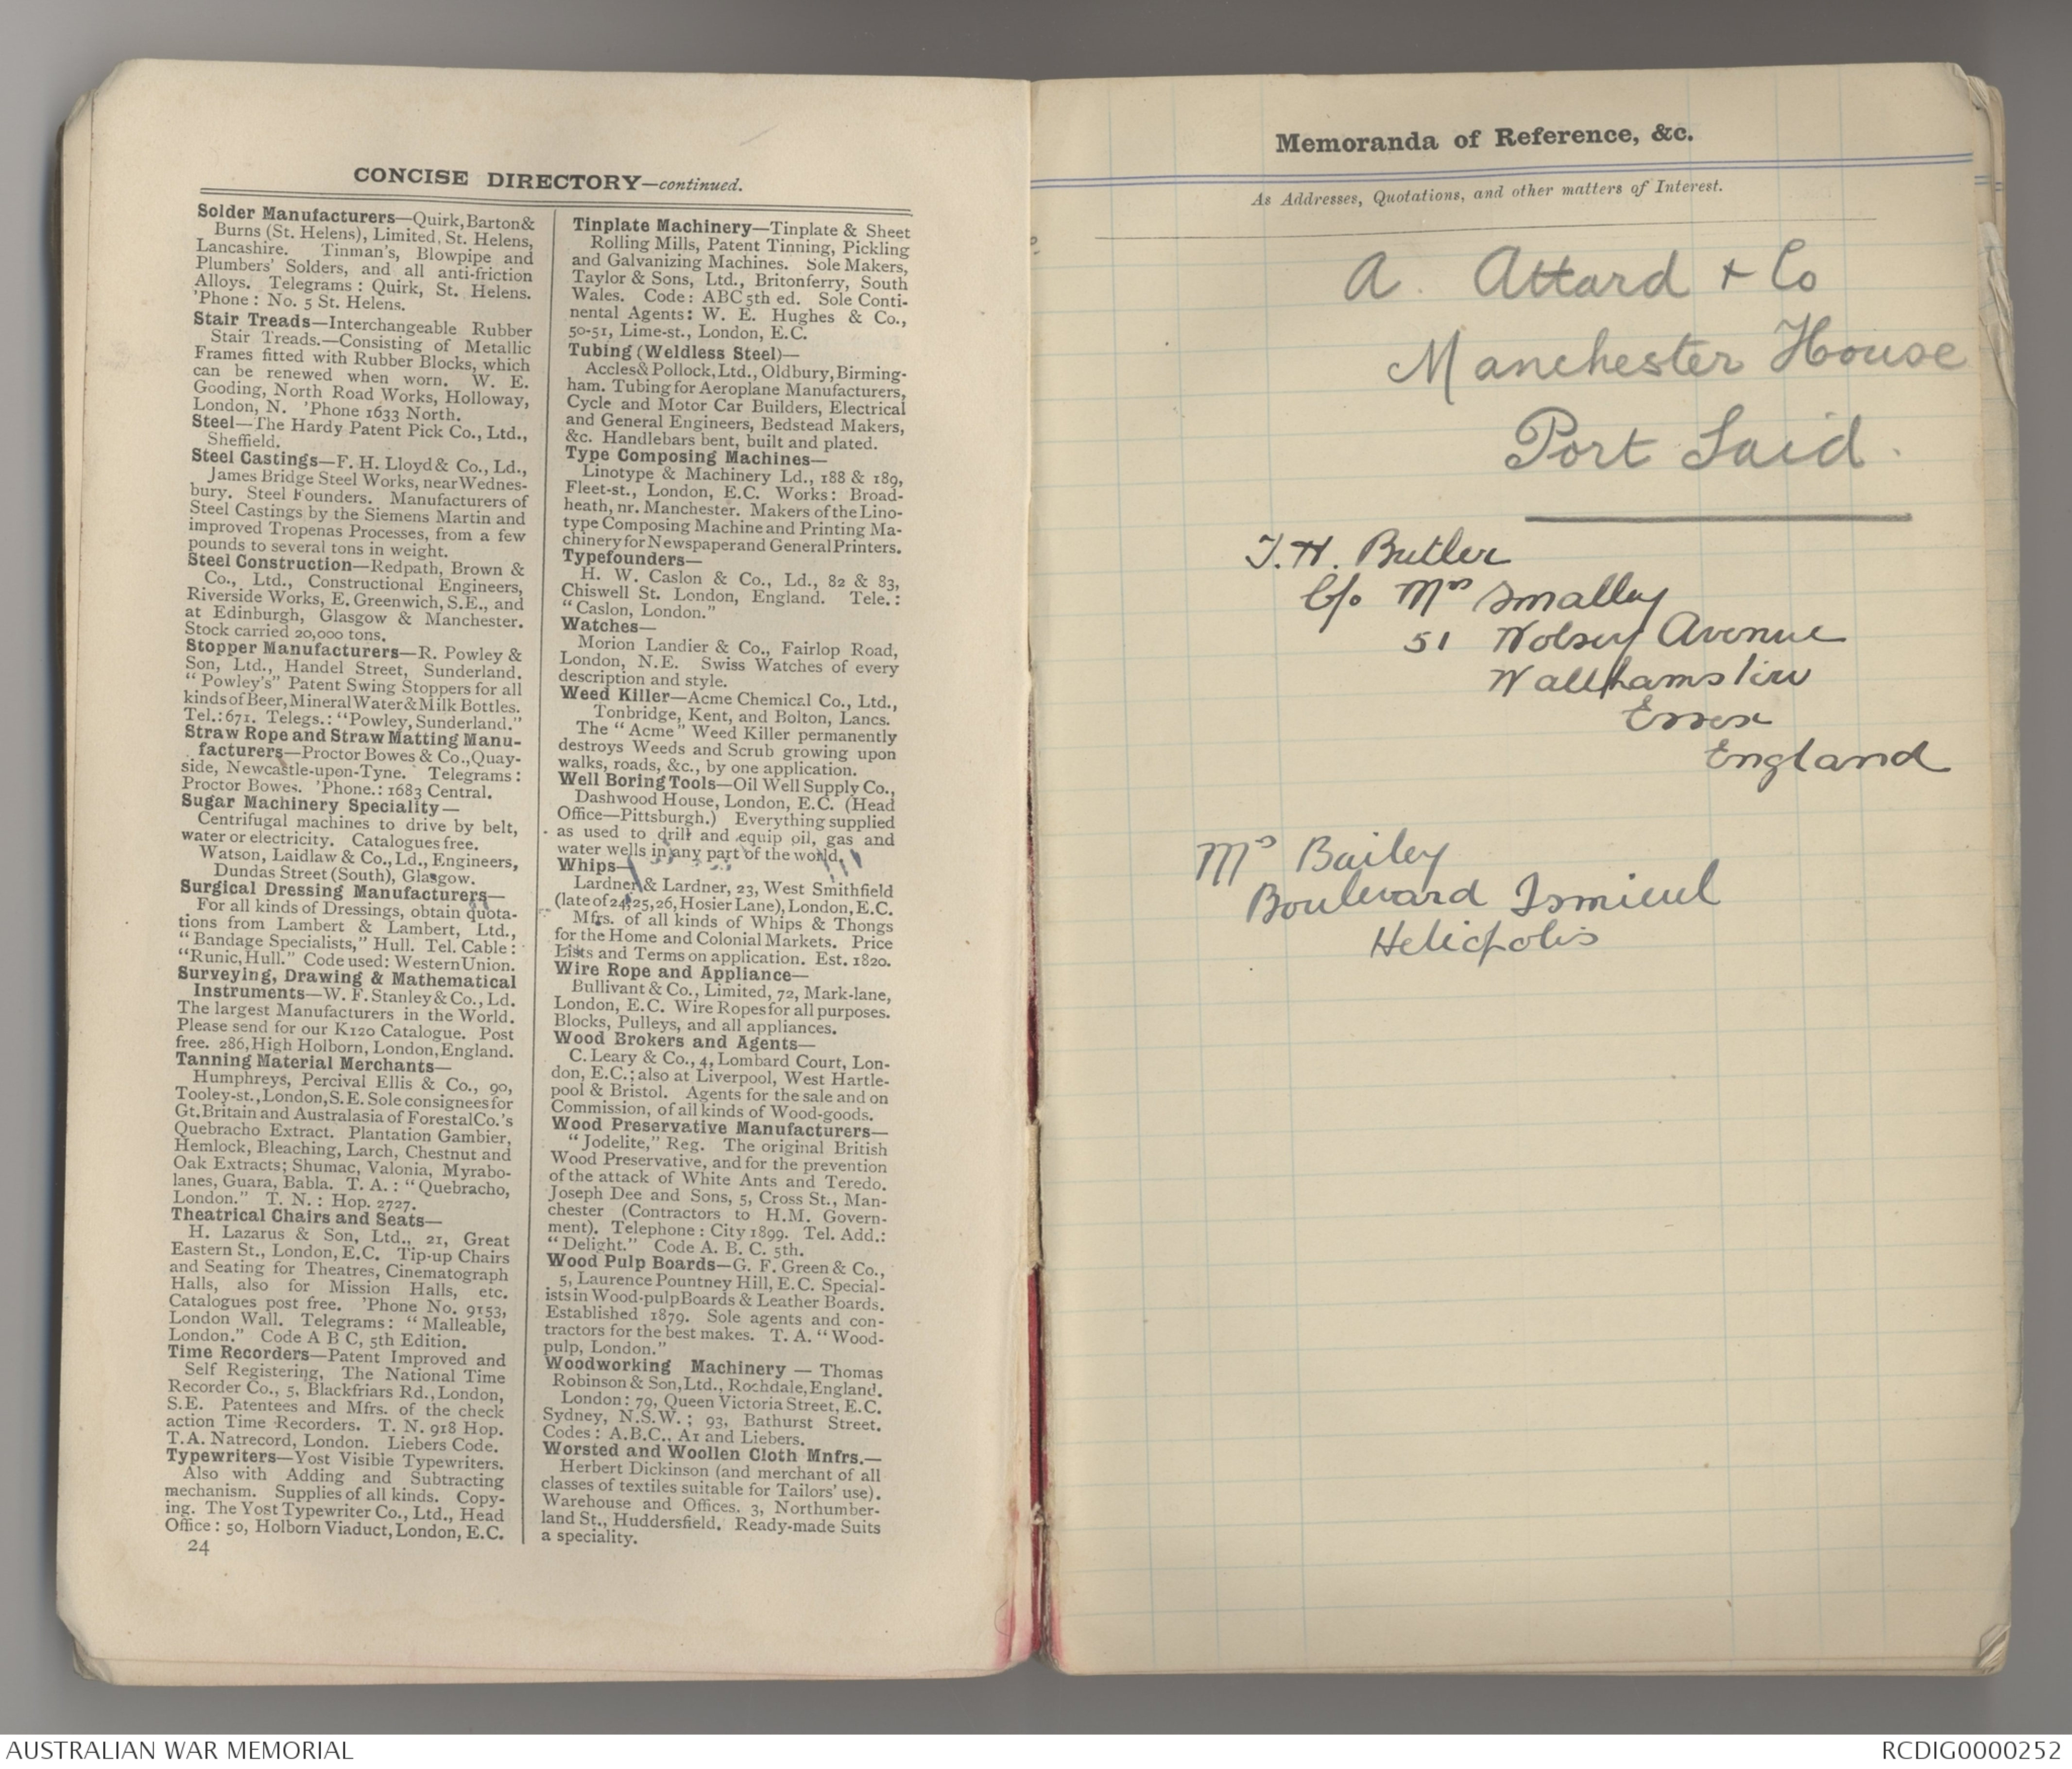 CONCISE DIRECTORY—continued.
Solder Manufacturers—Quirk, Barton &
Burns (St. Helens), Limited, St. Helens,
Lancashire. Tinman's, Blowpipe and
Plumbers' Solders, and all anti-friction
Alloys. Telegrams: Quirk, St. Helens.
'Phone: No. 5 St. Helens.
Stair Treads—Interchangeable Rubber
Stair Treads.—Consisting of Metallic
Frames fitted with Rubber Blocks, which
can be renewed when worn. W. E.
Gooding, North Road Works, Holloway,
London, N. 'Phone 1633 North.
Steel—The Hardy Patent Pick Co., Ltd.,
Sheffield.
Steel Castings—F. H. Lloyd & Co., Ld.,
James Bridge Steel Works, near Wednes-
bury. Steel Founders. Manufacturers of
Steel Castings by the Siemens Martin and
improved Tropenas Processes, from a few
pounds to several tons in weight.
Steel Construction—Redpath, Brown &
Co., Ltd., Constructional Engineers,
Riverside Works, E. Greenwich, S.E., and
at Edinburgh, Glasgow & Manchester.
Stock carried 20,000 tons.
Stopper Manufacturers—R. Powley &
Son, Ltd., Handel Street, Sunderland.
"Powley's" Patent Swing Stoppers for all
kinds of Beer, Mineral Water & Milk Bottles.
Tel.: 671. Telegs.: "Powley, Sunderland."
Straw Rope and Straw Matting Manu-
facturers—Proctor Bowes & Co., Quay-
side, Newcastle-upon-Tyne. Telegrams:
Proctor Bowes. 'Phone.: 1683 Central.
Sugar Machinery Speciality—
Centrifugal machines to drive by belt,
water or electricity. Catalogues free.
Watson, Laidlaw & Co., Ld., Engineers,
Dundas Street (South), Glasgow.
Surgical Dressing Manufacturers—
For all kinds of Dressings, obtain quota-
tions from Lambert & Lambert, Ltd.,
"Bandage Specialists," Hull. Tel. Cable:
"Runic, Hull." Code used: Western Union.
Surveying, Drawing & Mathematical
Instruments—W. F. Stanley & Co., Ld.
The largest Manufacturers in the World.
Please send for our K120 Catalogue. Post
free. 286, High Holborn, London, England.
Tanning Material Merchants—
Humphreys, Percival Ellis & Co., 90,
Tooley-st., London, S.E. Sole consignees for
Gt. Britain and Australasia of Forestal Co.'s
Quebracho Extract. Plantation Gambier,
Hemlock, Bleaching, Larch, Chestnut and
Oak Extracts; Shumac, Valonia, Myrabo-
lanes, Guara, Babla. T. A.: "Quebracho,
London." T. N.: Hop. 2727.
Theatrical Chairs and Seats—
H. Lazarus & Son, Ltd., 21, Great
Eastern St., London, E.C. Tip-up Chairs
and Seating for Theatres, Cinematograph
Halls, also for Mission Halls, etc.
Catalogues post free. 'Phone No. 9153,
London Wall. Telegrams: "Malleable,
London." Code A B C, 5th Edition.
Time Recorders—Patent Improved and
Self Registering, The National Time
Recorder Co., 5, Blackfriars Rd., London,
S.E. Patentees and Mfrs. of the check
action Time Recorders. T. N. 918 Hop.
T.A. Natrecord, London. Liebers Code.
Typewriters—Yost Visible Typewriters.
Also with Adding and Subtracting
mechanism. Supplies of all kinds. Copy-
ing. The Yost Typewriter Co., Ltd., Head
Office: 50, Holborn Viaduct, London, E.C.
24
Tinplate Machinery—Tinplate & Sheet
Rolling Mills, Patent Tinning, Pickling
and Galvanizing Machines. Sole Makers,
Taylor & Sons, Ltd., Britonferry, South
Wales. Code: ABC 5th ed. Sole Conti-
nental Agents: W. E. Hughes & Co.,
50-51, Lime-st., London, E.C.
Tubing (Weldless Steel)—
Accles & Pollock, Ltd., Oldbury, Birming-
ham. Tubing for Aeroplane Manufacturers,
Cycle and Motor Car Builders, Electrical
and General Engineers, Bedstead Makers,
&c. Handlebars bent, built and plated.
Type Composing Machines—
Linotype & Machinery Ld., 188 & 189,
Fleet-st., London, E.C. Works: Broad-
heath, nr. Manchester. Makers of the Lino-
type Composing Machine and Printing Ma-
chinery for Newspaper and General Printers.
Typefounders—
H. W. Caslon & Co., Ld., 82 & 83,
Chiswell St. London, England. Tele.:
"Caslon, London."
Watches—
Morion Landier & Co., Fairlop Road,
London, N.E. Swiss Watches of every
description and style.
Weed Killer—Acme Chemical Co., Ltd.,
Tonbridge, Kent, and Bolton, Lancs.
The "Acme" Weed Killer permanently
destroys Weeds and Scrub growing upon
walks, roads, &c., by one application.
Well Boring Tools—Oil Well Supply Co.,
Dashwood House, London, E.C. (Head
Office—Pittsburgh.) Everything supplied
as used to drill and equip oil, gas and
water wells in any part of the world.
Whips—
Lardner & Lardner, 23, West Smithfield
(late of 24, 25, 26, Hosier Lane), London, E.C.
Mfrs. of all kinds of Whips & Thongs
for the Home and Colonial Markets. Price
Lists and Terms on application. Est. 1820.
Wire Rope and Appliance—
Bullivant & Co., Limited, 72, Mark-lane,
London, E.C. Wire Ropes for all purposes.
Blocks, Pulleys, and all appliances.
Wood Brokers and Agents—
C. Leary & Co., 4, Lombard Court, Lon-
don, E.C.; also at Liverpool, West Hartle-
pool & Bristol. Agents for the sale and on
Commission, of all kinds of Wood-goods.
Wood Preservative Manufacturers—
"Jodelite," Reg. The original British
Wood Preservative, and for the prevention
of the attack of White Ants and Teredo.
Joseph Dee and Sons, 5, Cross St., Man-
chester (Contractors to H.M. Govern-
ment). Telephone: City 1899. Tel. Add.:
"Delight." Code A. B. C. 5th.
Wood Pulp Boards—G. F. Green & Co.,
5, Laurence Pountney Hill, E.C. Special-
ists in Wood-pulp Boards & Leather Boards.
Established 1879. Sole agents and con-
tractors for the best makes. T. A. "Wood-
pulp, London."
Woodworking Machinery — Thomas
Robinson & Son, Ltd., Rochdale, England.
London: 79, Queen Victoria Street, E.C.
Sydney, N.S.W.; 93, Bathurst Street.
Codes: A.B.C., A1 and Liebers.
Worsted and Woollen Cloth Mnfrs.—
Herbert Dickinson (and merchant of all
classes of textiles suitable for Tailors' use).
Warehouse and Offices. 3, Northumber-
land St., Huddersfield. Ready-made Suits
a speciality.
Memoranda of Reference, &c.
As Addresses, Quotations, and other matters of Interest.
A. Attard + Co
Manchester House
Port Said.
T. H. Butler
C/o Mrs Smalley
51 Wolsey Avenue
Walthamstow
Essex
England
Mrs Bailey
Boulevard Ismieul
Heliopolis
AUSTRALIAN WAR MEMORIAL
RCDIG0000252